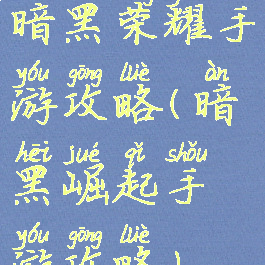 暗黑荣耀手
yóu gōng lüè àn
游攻略(暗
hēi jué qǐ shǒu
黑崛起手
yóu gōng lüè
游攻略)